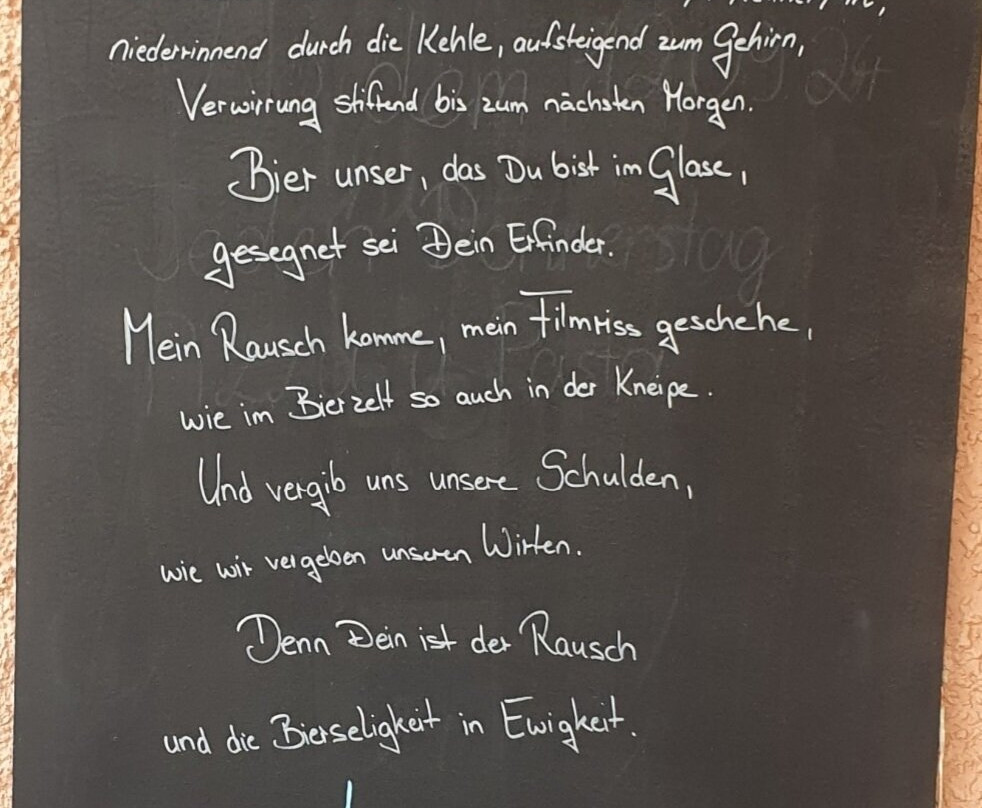 niederrinnend durch die Kehle, aufsteigend zum Gehirn,
Verwirrung stiftend bis zum nächsten Morgen.
Bier unser, das Du bist im Glase,
gesegnet sei Dein Erfinder.
Mein Rausch komme, mein Filmriss geschehe,
wie im Bierzelt so auch in der Kneipe.
Und vergib uns unsere Schulden,
wie wir vergeben unseren Wirten.
Denn Dein ist der Rausch
und die Bierseligkeit in Ewigkeit.